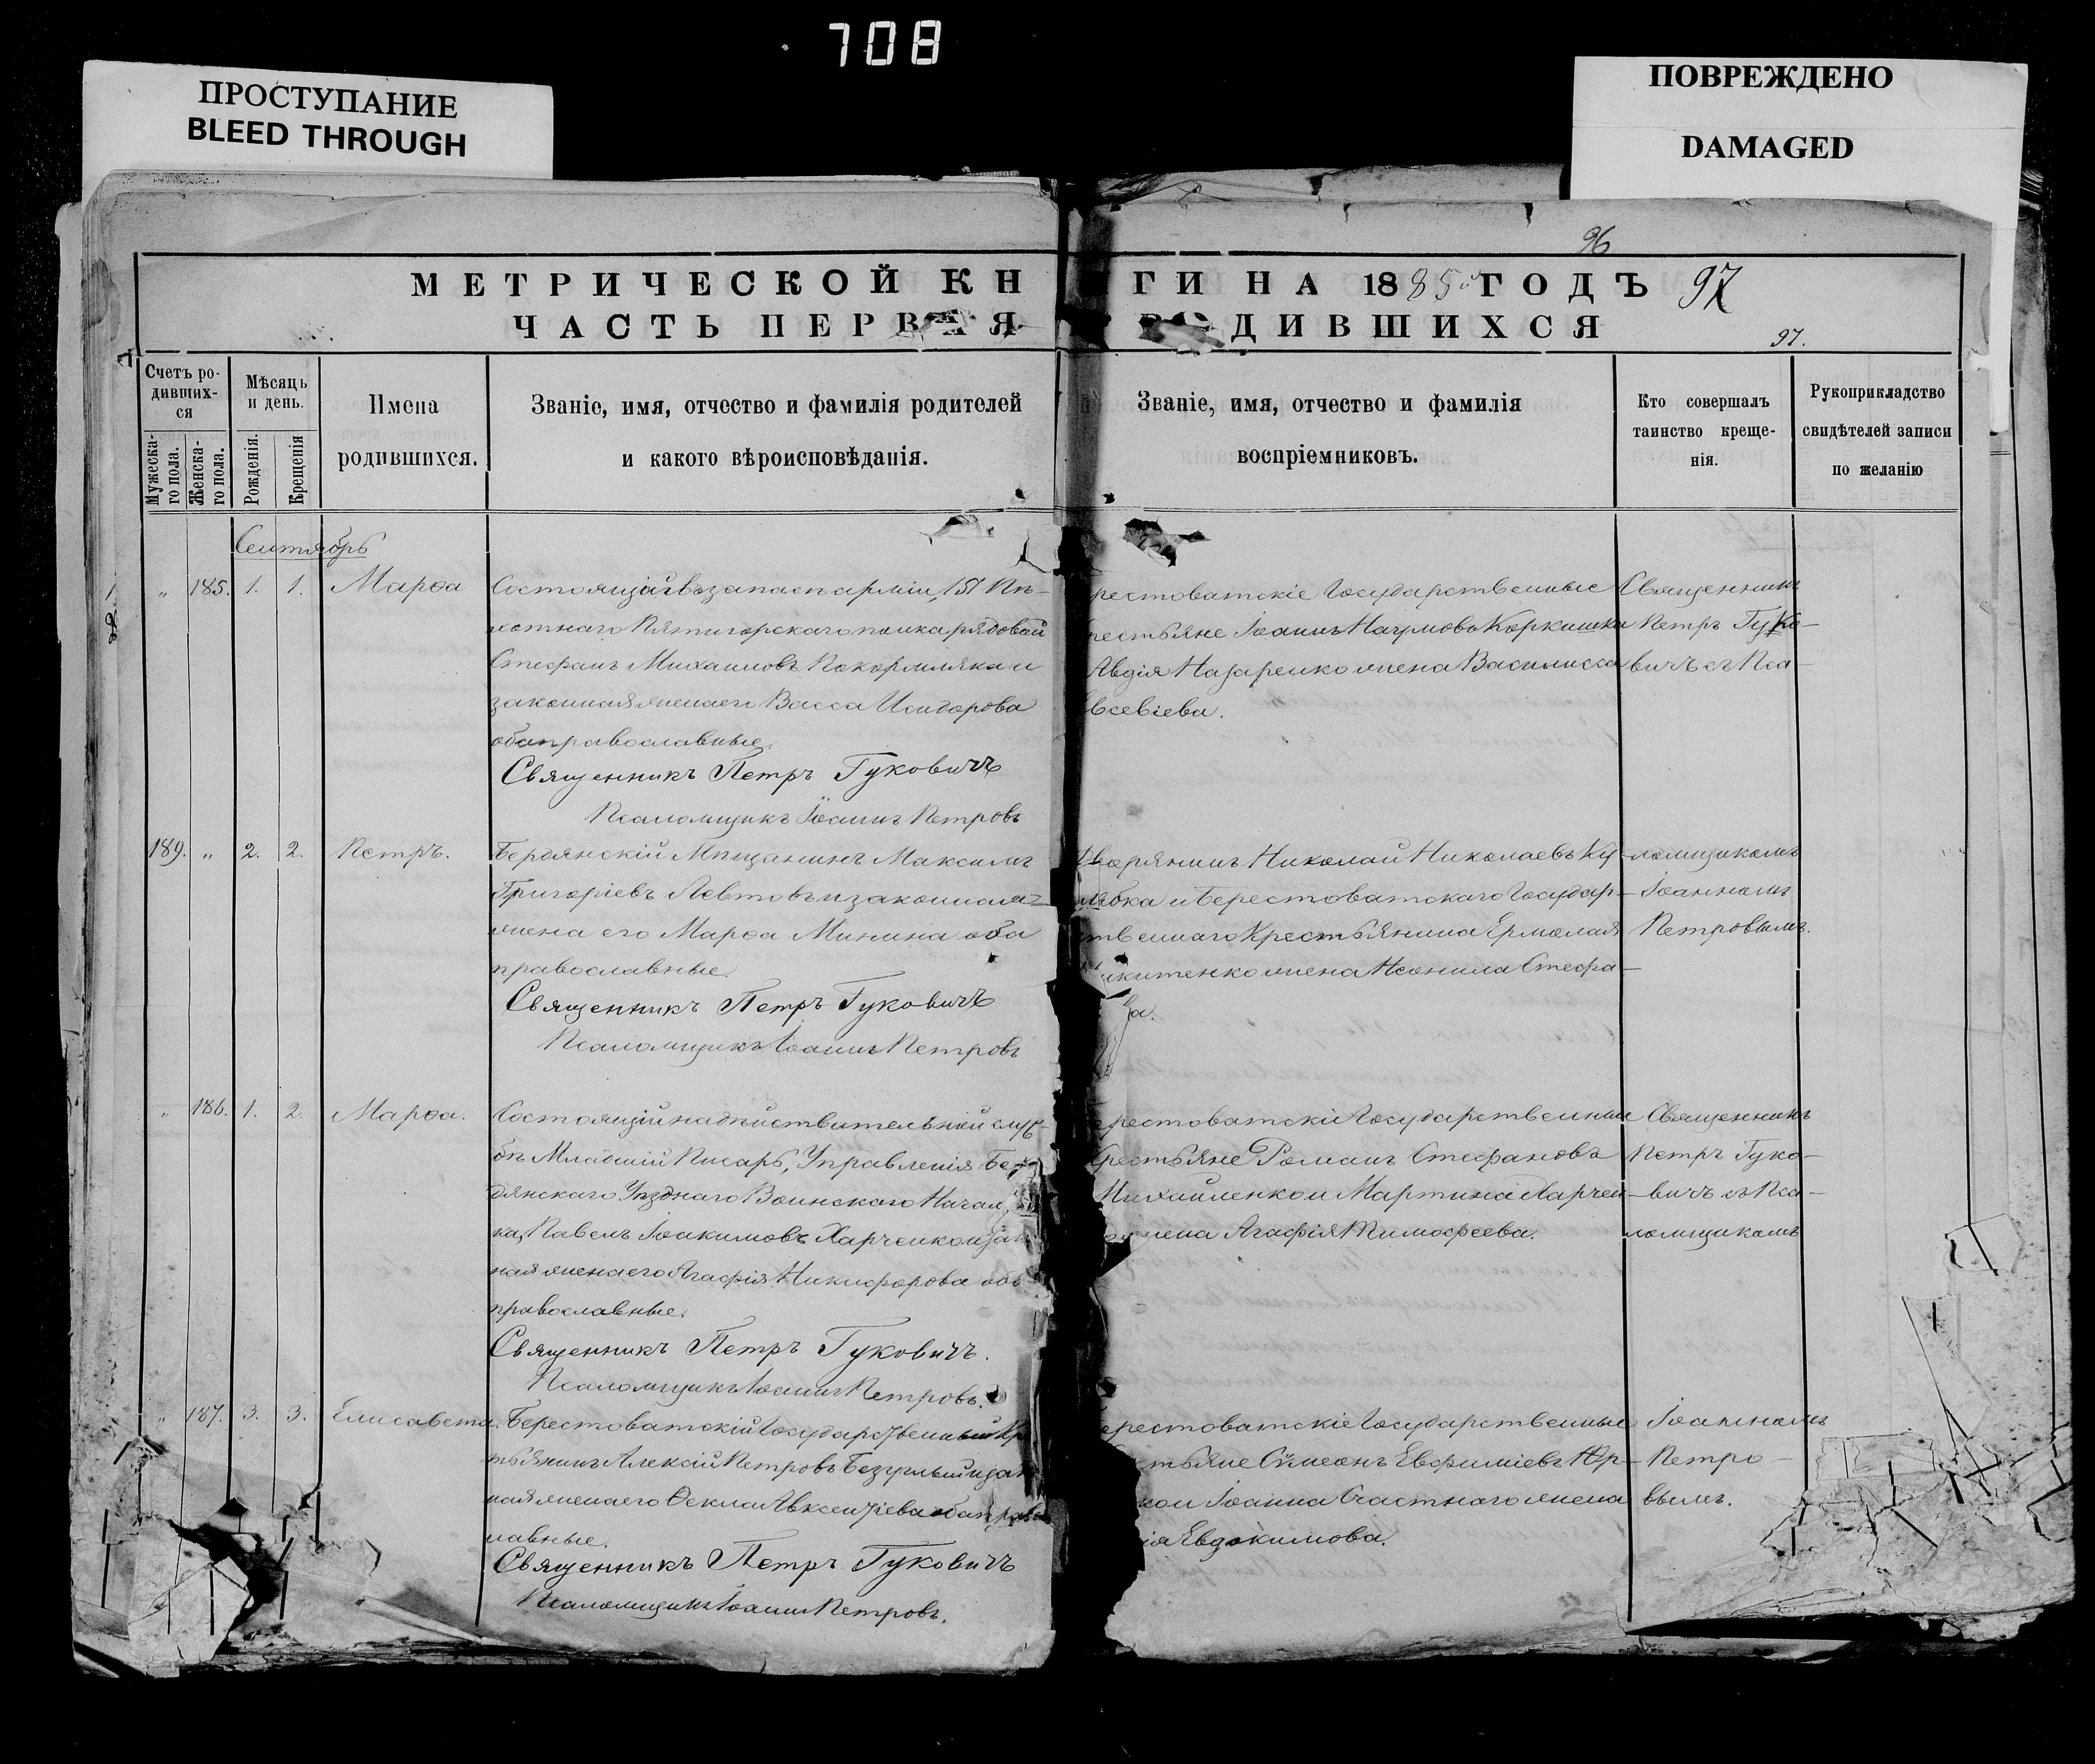 708
ПРОСТУПАНИЕ
BLEED THROUGH
ПОВРЕЖДЕНО
DAMAGED
96
МЕТРИЧЕСКОЙ КНИГИ НА 1885й ГОДЪ 97
ЧАСТЬ ПЕРВАЯ РОДИВШИХСЯ
97.
Счетъ ро-
дивших-
ся
Мужеска-
го пола.
Женска-
го пола.
Мѣсяцъ
и день.
Рожденія.
Крещенія
Имена
родившихся.
Званіе, имя, отчество и фамилія родителей
и какого вѣроисповѣданія.
Званіе, имя, отчество и фамилія
воспріемниковъ.
Кто совершалъ
таинство креще-
нія.
Рукоприкладство
свидѣтелей записи
по желанію
Сентябрь
„ 185. 1. 1. Марѳа
Состоящій въ запасѣ арміи, 151 Пѣ-
хотнаго Пятигорскаго полка рядовой
Стефанъ Михаиловъ Покормляка и
законная жена его Васса Исидорова
оба православные.
Священникъ Петръ Гуковичъ
Псаломщикъ Іоаннъ Петровъ
рестоватскіе Государственные
рестьяне Іоаннъ Наумовъ Коркишка
Авдія Назаренко жена Василиса
Евсевіева.
Священникъ
Петръ Гуко-
вичъ съ Пса-
189. „ 2. 2. Петръ.
Бердянскій Мѣщанинъ Максимъ
Григоріевъ Левтовъ и законная
жена его Марѳа Минина оба
православные.
Священникъ Петръ Гуковичъ
Псаломщикъ Іоаннъ Петровъ
Дворянинъ Николай Николаевъ Ку-
лябка и Берестоватскаго Государ-
ственнаго Крестьянина Ермолая
икитенко жена Неонила Стефа-
ва.
ломщикомъ
Іоанномъ
Петровымъ.
„ 186. 1. 2. Марѳа.
Состоящій на дѣйствительной служ-
бѣ Младшій Писарь, Управленія Бер-
дянскаго Уѣзднаго Воинскаго Началь
ка, Павелъ Іоакимовъ Харченко и зак
ная жена его Агафія Никифорова оба
православные.
Священникъ Петръ Гуковичъ.
Псаломщикъ Іоаннъ Петровъ.
ерестоватскіе Государственные
Крестьяне Романъ Стефановъ
Михайленко и Мартина Харчен-
жена Агафія Тимофеева.
Священникъ
Петръ Гуко-
вичъ съ Пса-
ломщикомъ
„ 187. 3. 3. Елисавета.
Берестоватскій Государственный Кр
тьянинъ Алексій Петровъ Безуглый и зак
ная жена его Ѳекла Авксентіева оба прав
лавные.
Священникъ Петръ Гуковичъ
Псаломщикъ Іоаннъ Петровъ.
ерестоватскіе Государственные
стьяне Сѵмеонъ Евфиміевъ Юр-
ко и Іоанна Счастнаго жена
ія Евдокимова.
Іоанномъ
Петро-
вымъ.